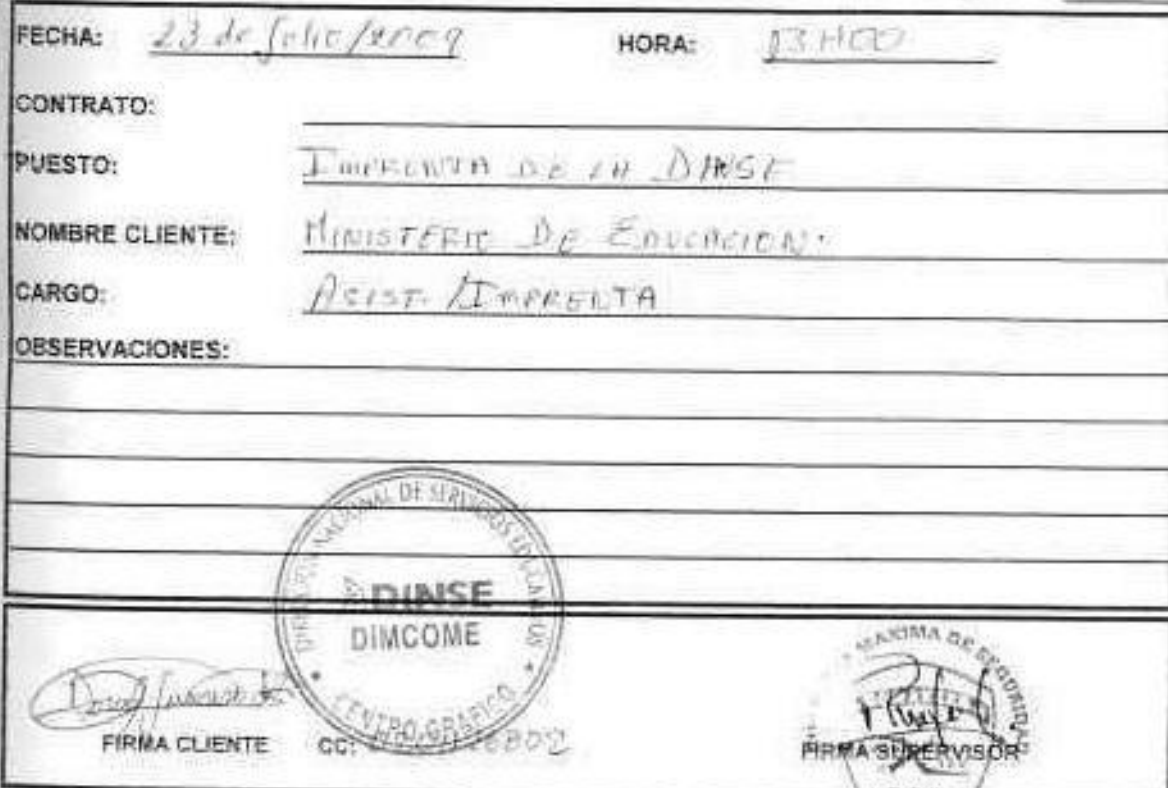 FECHA: 23 de Julio/2009 HORA: 13H00
CONTRATO:
PUESTO: IMPRENTA DE LA DINSE
NOMBRE CLIENTE: MINISTERIO DE EDUCACION.
CARGO: ASIST. /IMPRENTA
OBSERVACIONES:
DIRECCION NACIONAL DE SERVICIOS EDUCATIVOS
DINSE
DIMCOME
CENTRO GRAFICO
MAXIMA DE SEGURIDAD
FIRMA CLIENTE CC:
FIRMA SUPERVISOR